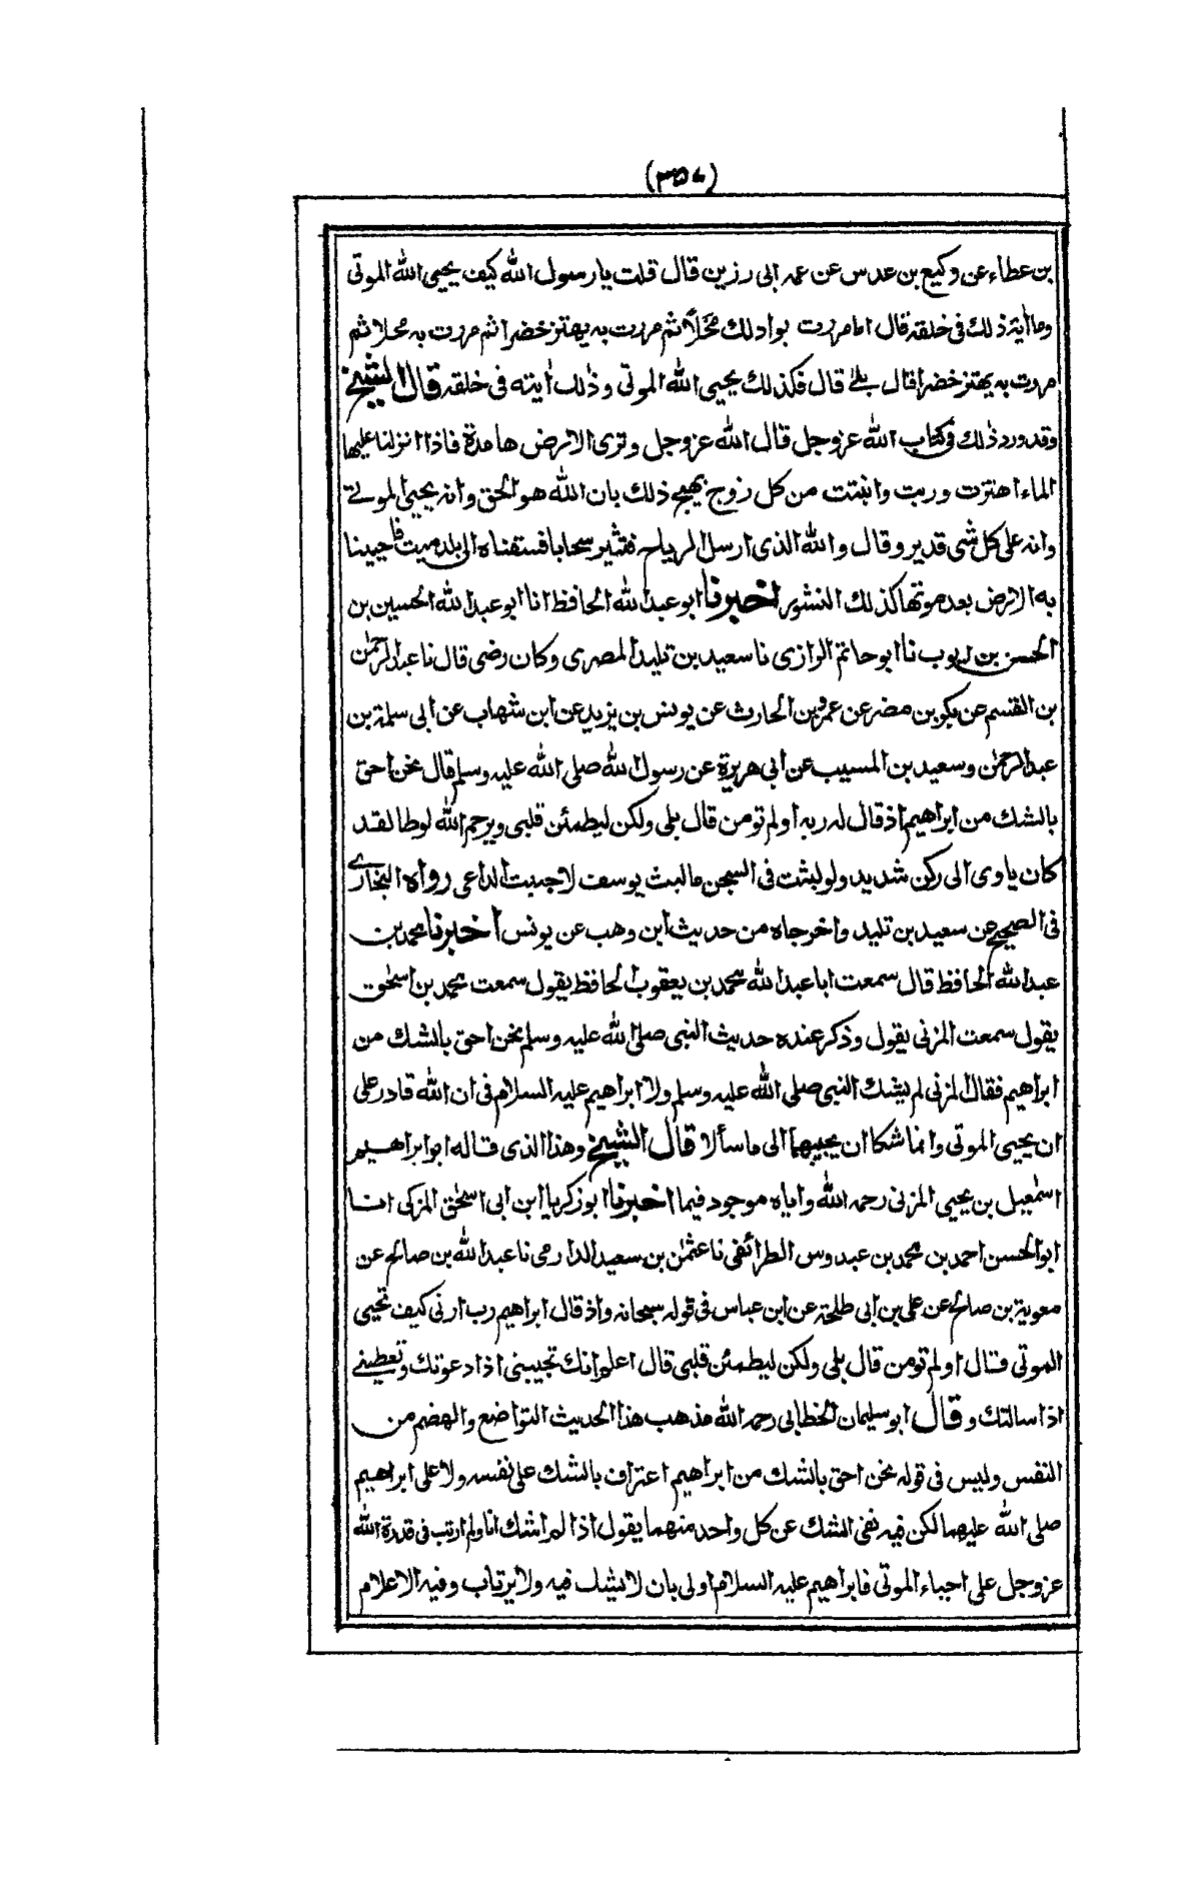 (٣٥٧)
بن عطاء عن وكيع بن عدس عن عمه ابى رزين قال قلت يا رسول الله كيف يحيى الله الموتى
وما اية ذلك فى خلقه قال اما مررت بوادلك محلا ثم مررت به يهتز خضرا ثم مررت به محلا ثم
مررت به يهتز خضرا قال بلى قال فكذلك يحيى الله الموتى وذلك ايته فى خلقه قال الشيخ
وقد ورد ذلك فى كتاب الله عزوجل قال الله عزوجل وترى الارض هامدة فاذا انزلنا عليها
الماء اهتزت وربت وانبتت من كل زوج بهيج ذلك بان الله هو الحق وانه يحيى الموتى
وانه على كل شى قدير وقال والله الذى ارسل الرياح فتثير سحابا فسقناه الى بلد ميت فاحيينا
به الارض بعد موتها كذلك النشور اخبرنا ابو عبد الله الحافظ انا ابو عبد الله الحسين بن
الحسن بن ايوب نا ابو حاتم الرازى نا سعيد بن تليد المصرى وكان رضى قال نا عبد الرحمن
بن القسم عن بكر بن مضر عن عمرو بن الحارث عن يونس بن يزيد عن ابن شهاب عن ابى سلمة بن
عبد الرحمن وسعيد بن المسيب عن ابى هريرة عن رسول الله صلى الله عليه وسلم قال نحن احق
بالشك من ابراهيم اذ قال له ربه اولم تومن قال بلى ولكن ليطمئن قلبى ويرحم الله لوطا لقد
كان ياوى الى ركن شديد ولو لبثت فى السجن ما لبث يوسف لاجبت الداعى رواه البخارى
فى الصحيح عن سعيد بن تليد واخرجاه من حديث ابن وهب عن يونس اخبرنا محمد بن
عبد الله الحافظ قال سمعت ابا عبد الله محمد بن يعقوب الحافظ يقول سمعت محمد بن اسحٰق
يقول سمعت المزنى يقول وذكر عنده حديث النبى صلى الله عليه وسلم نحن احق بالشك من
ابراهيم فقال المزنى لم يشك النبى صلى الله عليه وسلم ولا ابراهيم عليه السلام فى ان الله قادر على
ان يحيى الموتى وانما شكا ان يجيبهما الى ما سألا قال الشيخ وهذا الذى قاله ابو ابراهيم
اسمٰعيل بن يحيى المزنى رحمه الله واياه موجود فيما اخبرنا ابو زكريا ابن ابى اسحٰق المزكى انا
ابو الحسن احمد بن محمد بن عبدوس الطرائفى نا عثمٰن بن سعيد الدارمى نا عبد الله بن صالح عن
معوية بن صالح عن على بن ابى طلحة عن ابن عباس فى قوله سبحانه واذ قال ابراهيم رب ارنى كيف تحيى
الموتى قال اولم تومن قال بلى ولكن ليطمئن قلبى قال اعلم انك تجيبنى اذا دعوتك وتعطينى
اذا سالتك وقال ابو سليمان الخطابى رحمه الله مذهب هذا الحديث التواضع والهضم من
النفس وليس فى قوله نحن احق بالشك من ابراهيم اعتراف بالشك على نفسه ولا على ابراهيم
صلى الله عليهما لكن فيه نفى الشك عن كل واحد منهما يقول اذا لم اشك انا ولم ارتب فى قدرة الله
عزوجل على احياء الموتى فابراهيم عليه السلام اولى بان لا يشك فيه ولا يرتاب وفيه الاعلام